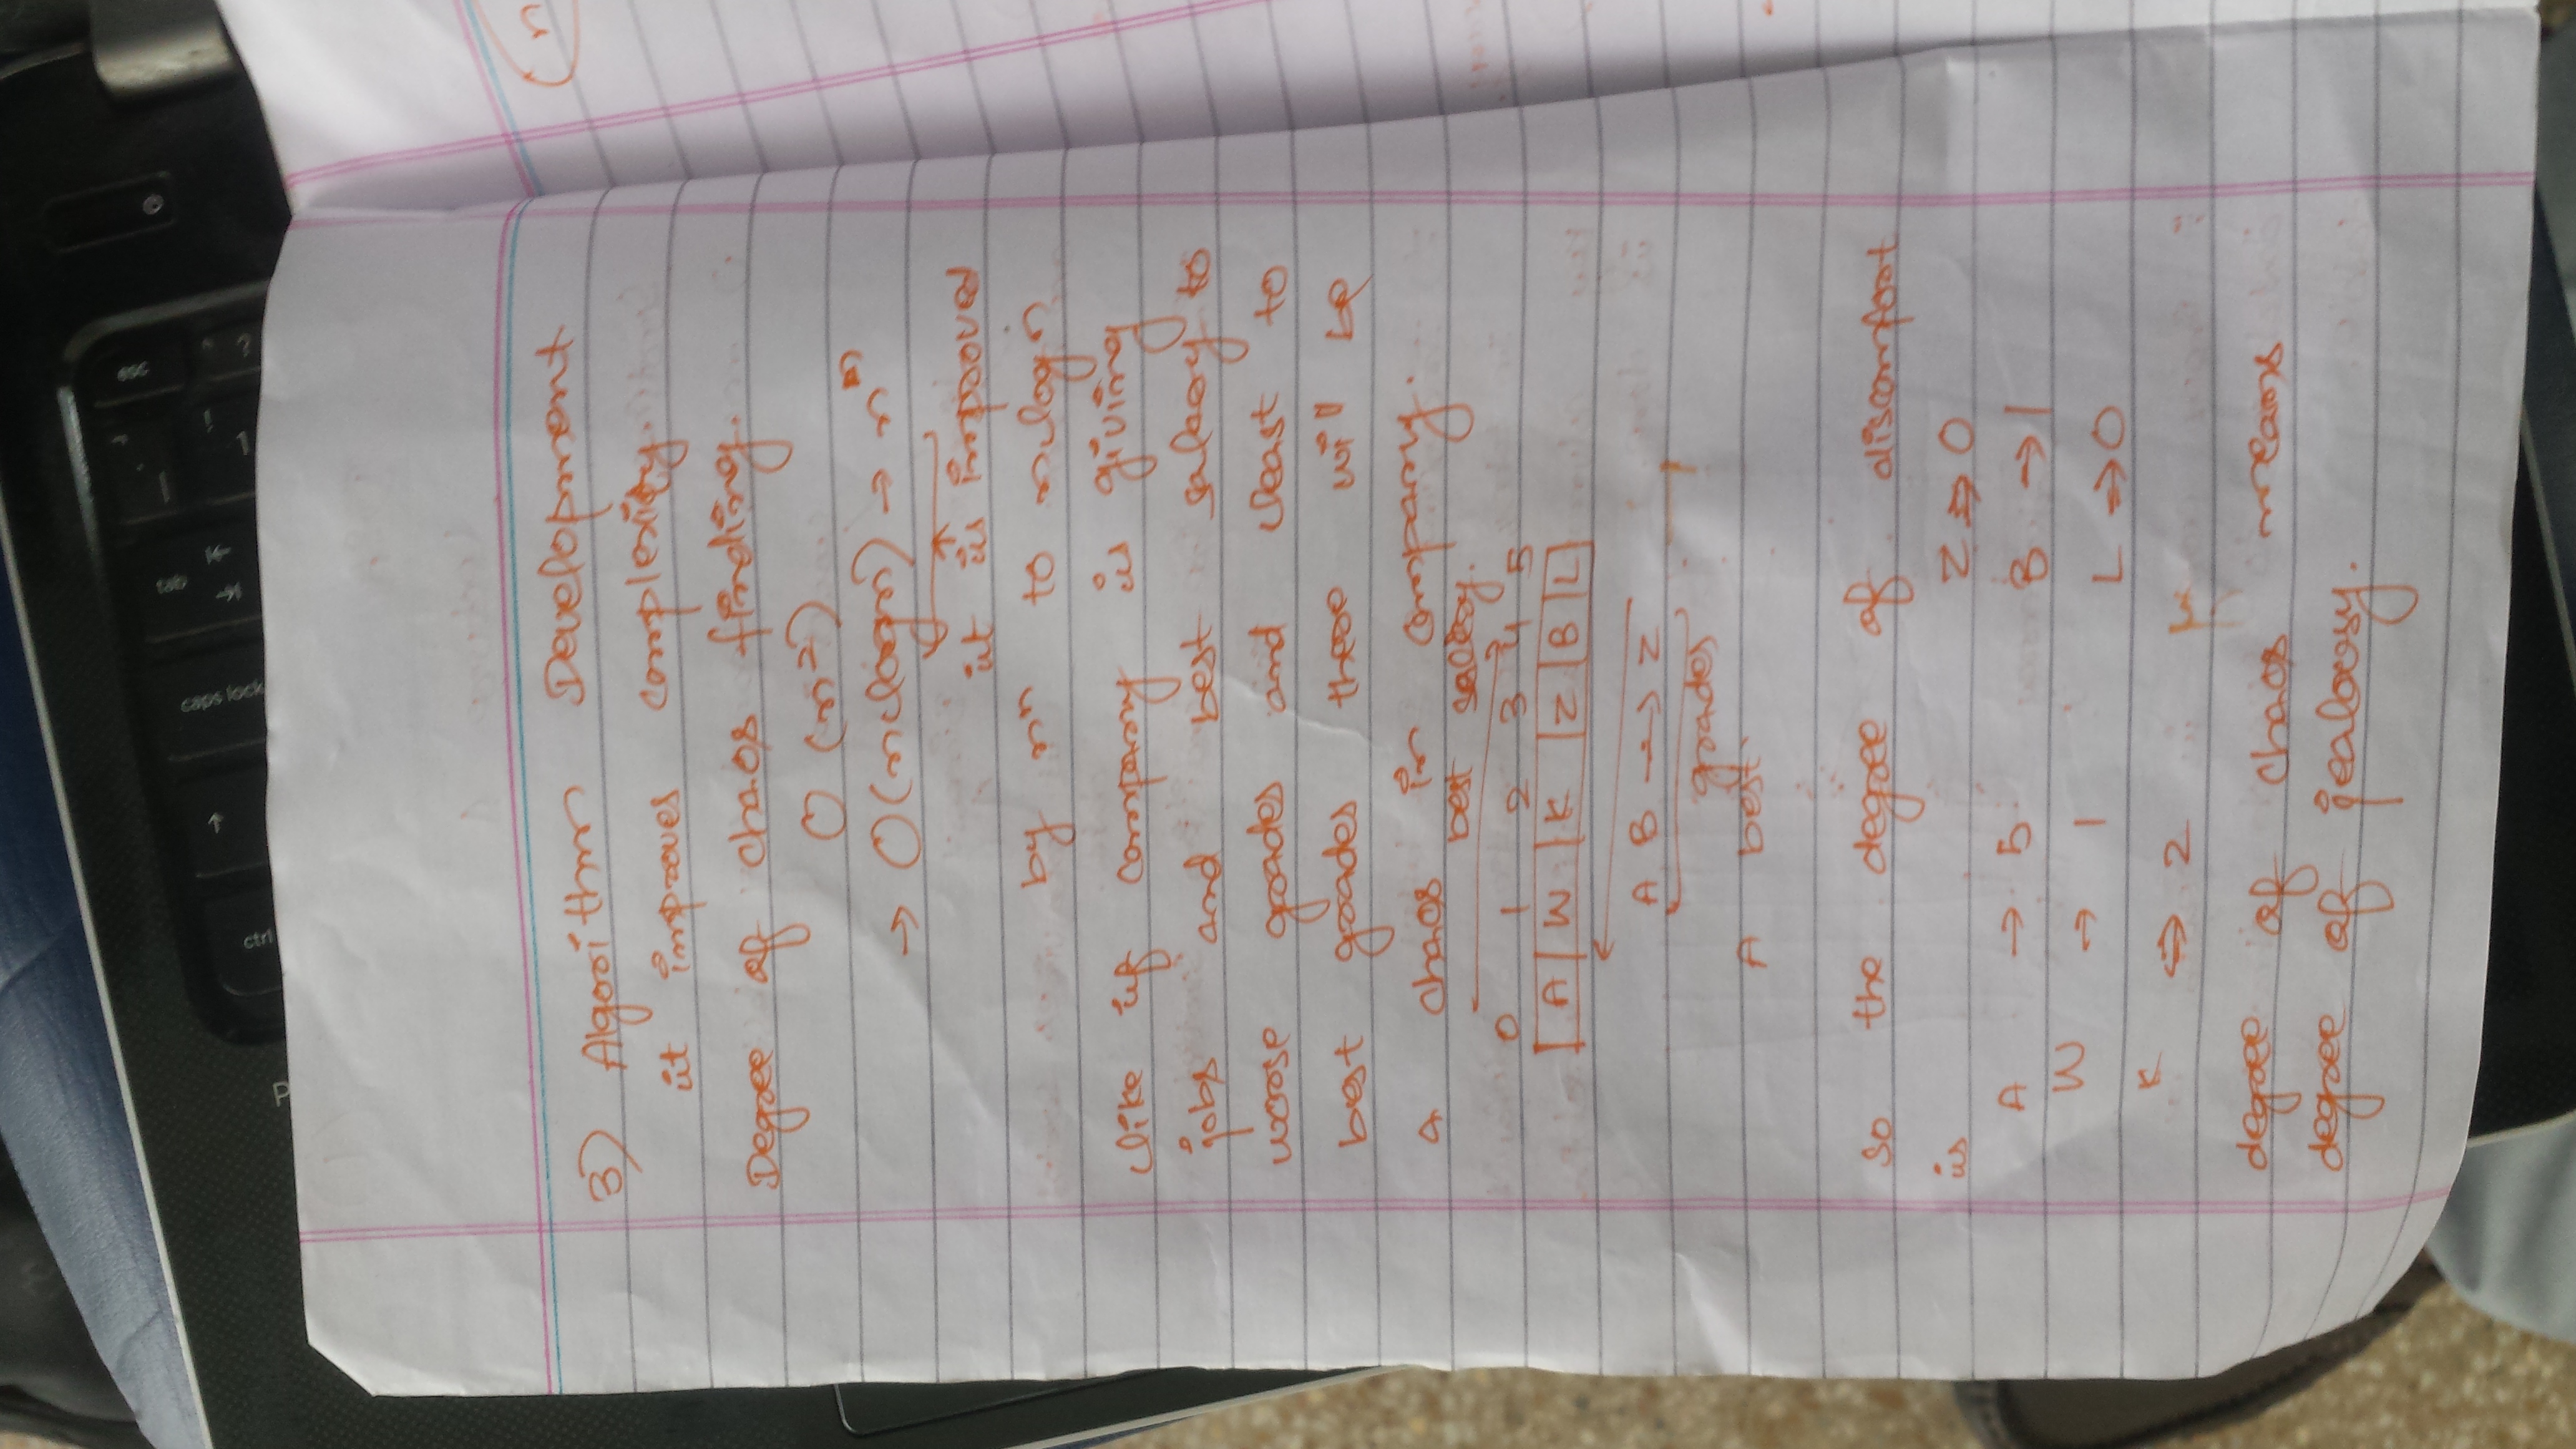 esc
tab
caps lock
ctrl
P
3) Algorithm Development
it improves complexity.
Degree of chaos finding.
O (n²)
→ O(nlogn) → nⁿ
it is improved
by nⁿ to nlogn
like if company is giving
jobs and best salary to
worse grades and least to
best grades there will be
a chaos in company.
best salary.
0 1 2 3 4 5
A W K Z B L
A B → Z
grades
A best.
so the degree of discomfort
is Z → 0
A → 5 B → 1
W → 1 L → 0
K → 2
degree of chaos means
degree of jealousy.
(n